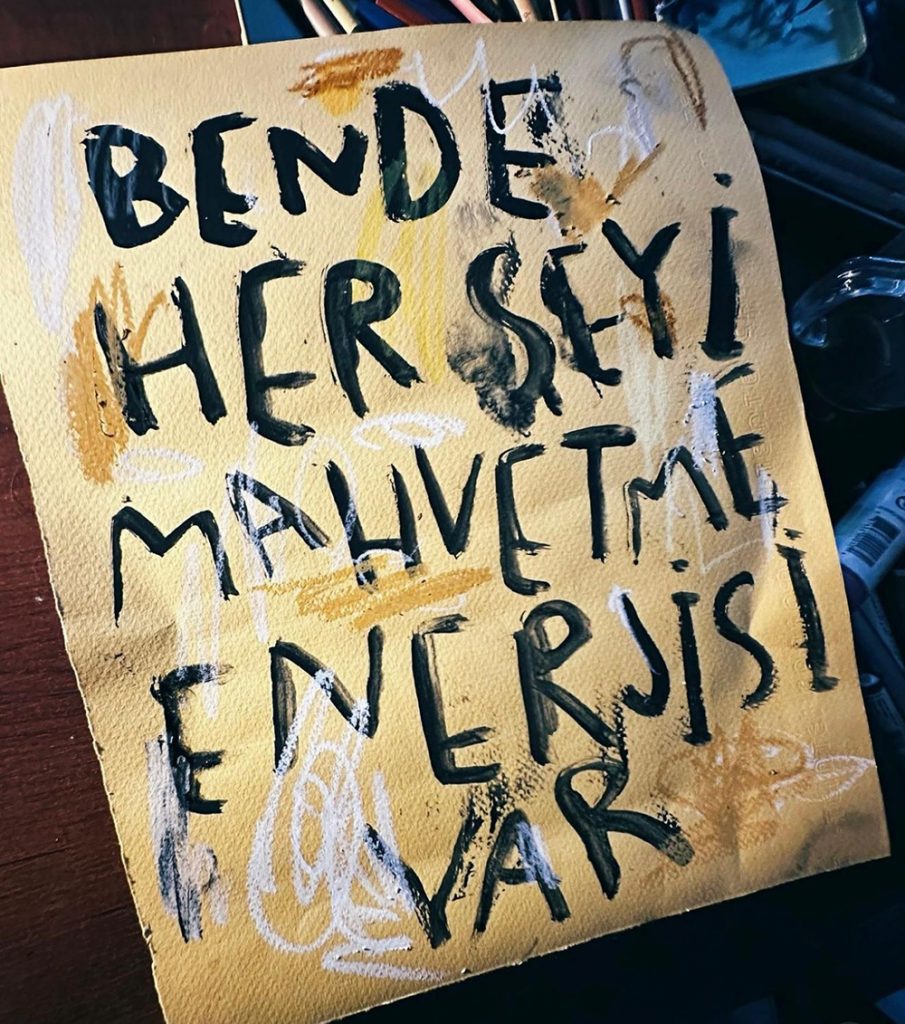 BENDE
HER ŞEYİ
MAHVETME
ENERJİSİ
VAR